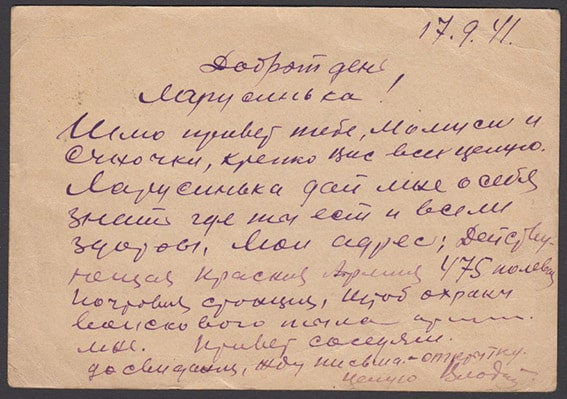 17.9.41.
Доброт ден
Марусинька!
Шлю привет тебе, Мамуси и
крепко Вас всех целую.
Марусинька дай мне о себе
знат где ты ест и всели
здоровы, Мои адрес; Действу-
ющая Красная Армия 475 полевая
Почтовая станция, Штоб охраны
войскового тыла армии
мне. Привет соседям.
досвидания, жду письма-открытку.
целую Володя